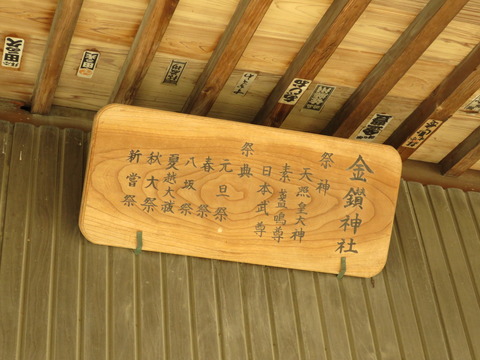 金鑚神社
祭神
天照皇大神
素盞嗚尊
日本武尊
祭典
元旦祭
春祭
八坂祭
夏越大祓
秋大祭
新嘗祭